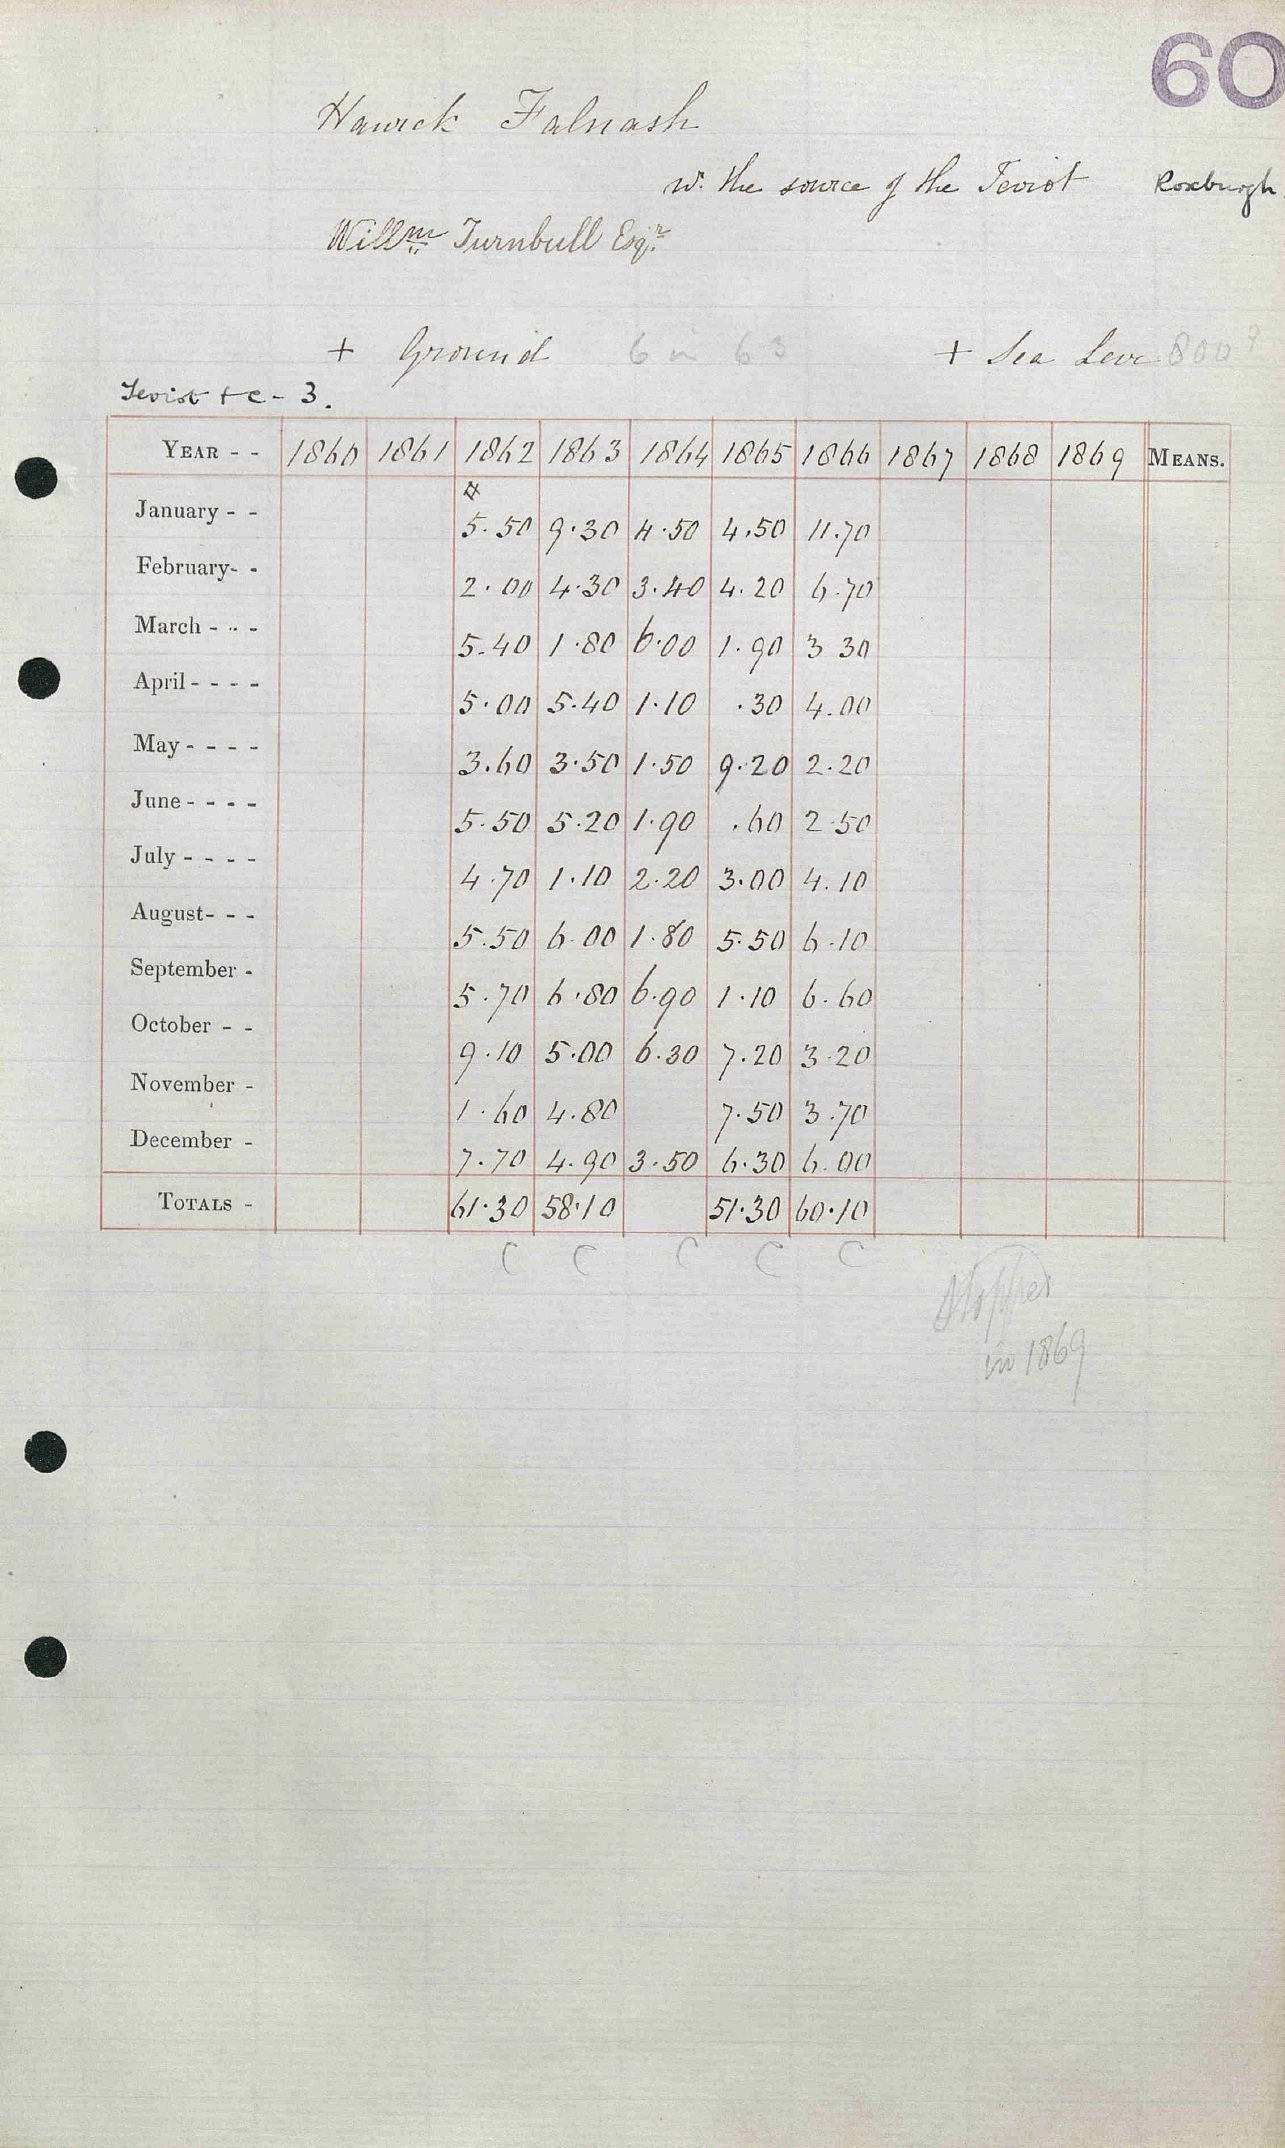 60
Hawick Falnash
nr. the source of the Teviot Roxburgh
Willm Turnbull Esqr
+ Ground 6 in 63 + Sea Leve 800?
Teviot &c - 3.
YEAR - - 1860 1861 1862 1863 1864 1865 1866 1867 1868 1869 MEANS.
January - - 5.50 9.30 4.50 4.50 11.70
February - - 2.00 4.30 3.40 4.20 6.70
March - - - 5.40 1.80 6.00 1.90 3 30
April - - - - 5.00 5.40 1.10 .30 4.00
May - - - - 3.60 3.50 1.50 9.20 2.20
June - - - - 5.50 5.20 1.90 .60 2.50
July - - - - 4.70 1.10 2.20 3.00 4.10
August - - - 5.50 6.00 1.80 5.50 6.10
September - 5.70 6.80 6.90 1.10 6.60
October - - 9.10 5.00 6.30 7.20 3.20
November - 1.60 4.80 7.50 3.70
December - 7.70 4.90 3.50 6.30 6.00
TOTALS - 61.30 58.10 51.30 60.10
C C C C C
in 1869